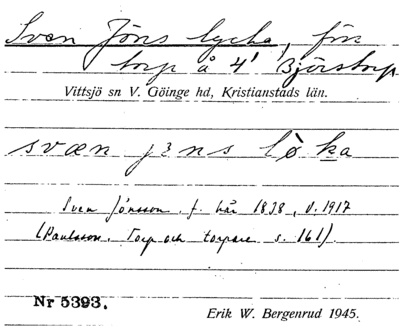 Sven Jöns lycka, för
torp å 4' Björstorp
Vittsjö sn V. Göinge hd, Kristianstads län.
svæn jɜns lòka
Sven Jönsson. f. här 1838, d. 1917
(Paulsson. Torp och torpare s. 161).
Nr 5393.
Erik W. Bergenrud 1945.